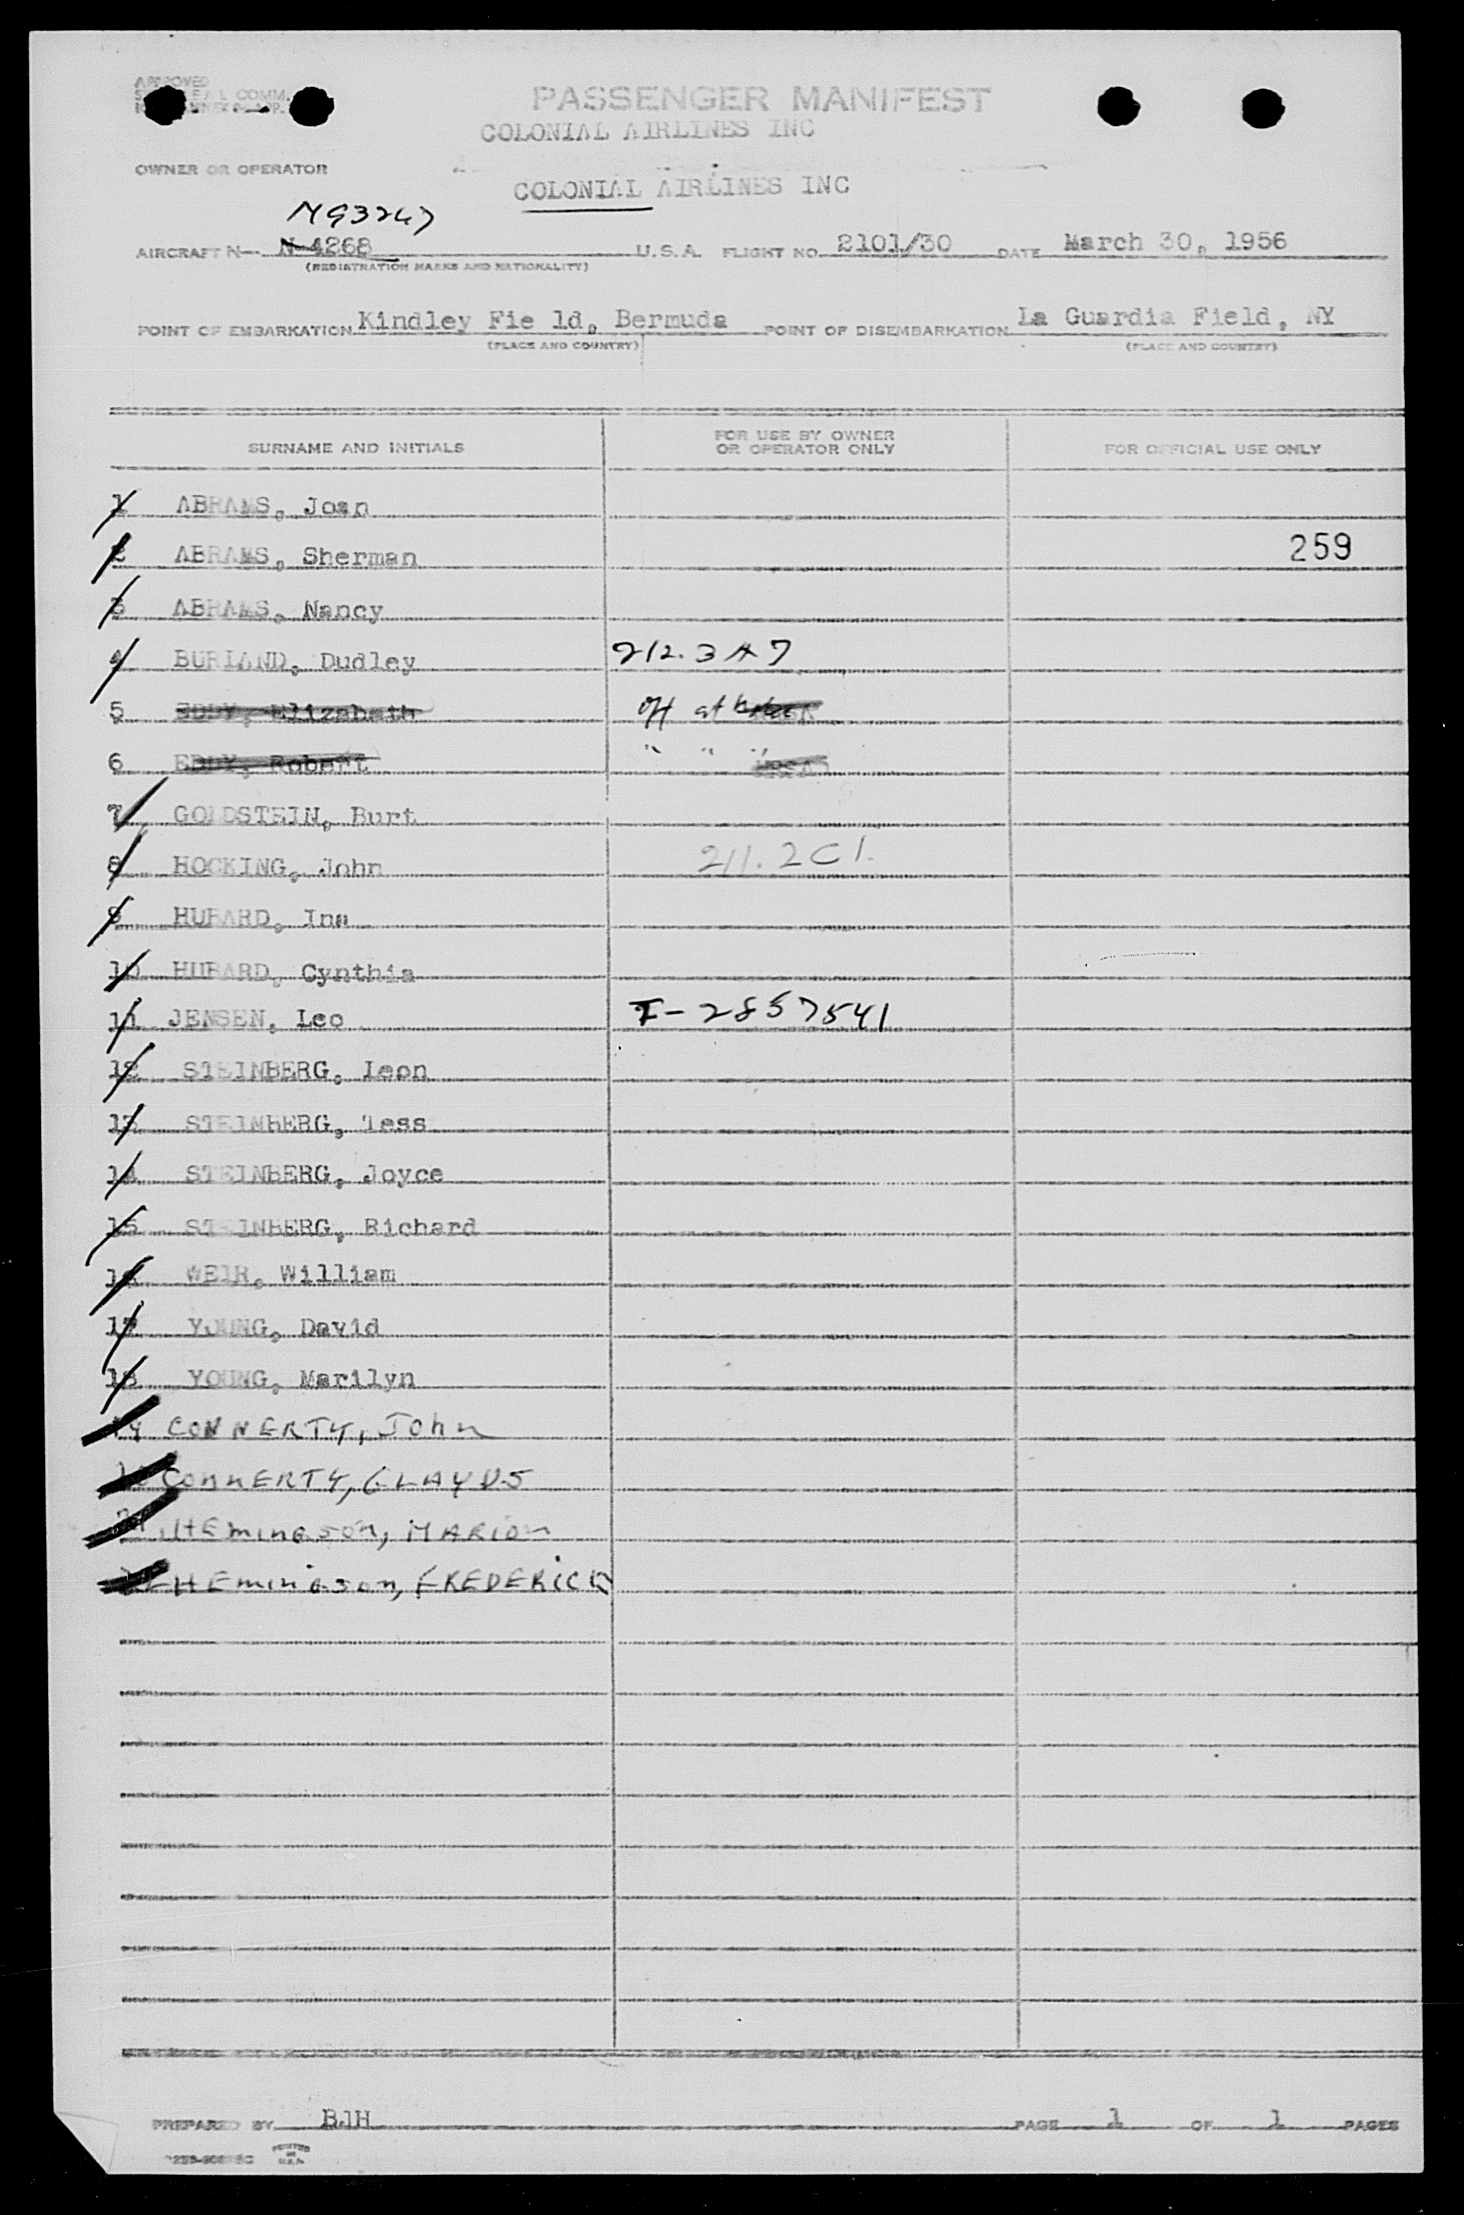 APPROVED
COMM.
PASSENGER MANIFEST
COLONIAL AIRLINES INC
OWNER OR OPERATOR
COLONIAL AIRLINES INC
N93247
AIRCRAFT N- N-4268 U.S.A. FLIGHT NO. 2101/30 DATE March 30, 1956
(REGISTRATION MARKS AND NATIONALITY)
POINT OF EMBARKATION Kindley Fie ld, Bermuda POINT OF DISEMBARKATION La Guardia Field, NY
(PLACE AND COUNTRY) (PLACE AND COUNTRY)
SURNAME AND INITIALS FOR USE BY OWNER OR OPERATOR ONLY FOR OFFICIAL USE ONLY
1 ABRAMS, Joan
2 ABRAMS, Sherman 259
3 ABRAMS, Nancy
4 BURLAND, Dudley 212.3 A7
5 EDDY, Elizabeth off at
6 EDDY, Robert " " "
7 GOLDSTEIN, Burt
8 HOCKING, John 211.2C1.
9 HUBARD, Ina
10 HUBARD, Cynthia
11 JENSEN, Leo I-2857541
12 STEINBERG, Leon
13 STEINBERG, Tess
14 STEINBERG, Joyce
15 STEINBERG, Richard
16 WEIR, William
17 YOUNG, David
18 YOUNG, Marilyn
19 CONNERTY, John
CONNERTY, GLAYDS
21 HEmingson, MARION
HEmingson, FREDERICK
PREPARED BY BJH PAGE 1 OF 1 PAGES
PRINTED IN U.S.A.